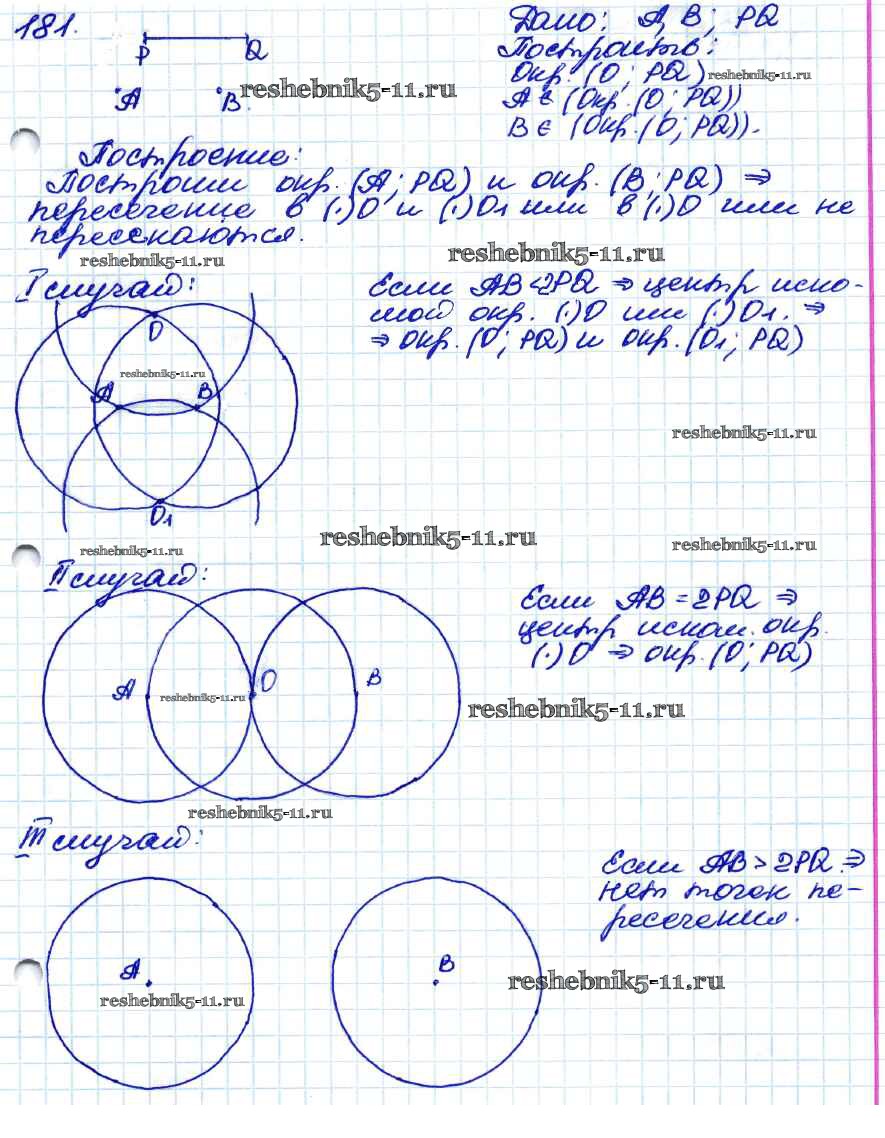 181.
P Q
A B
reshebnik5-11.ru
Дано: A, B; PQ
Построить:
Окр. (O; PQ)
reshebnik5-11.ru
A ∈ (Окр. (O; PQ))
B ∈ (Окр. (O; PQ)).
Построение:
Построим окр. (A; PQ) и окр. (B; PQ) ⇒
пересечение в (·)O и (·)O1 или в (·)O или не
пересекаются.
reshebnik5-11.ru
reshebnik5-11.ru
I случай:
Если AB < 2PQ ⇒ центр иско-
мой окр. (·)O или (·)O1. ⇒
⇒ окр. (O; PQ) и окр. (O1; PQ)
O
reshebnik5-11.ru
A B
reshebnik5-11.ru
O1
reshebnik5-11.ru
reshebnik5-11.ru
reshebnik5-11.ru
II случай:
Если AB = 2PQ ⇒
центр иском. окр.
(·)O ⇒ окр. (O; PQ)
A O B
reshebnik5-11.ru
reshebnik5-11.ru
reshebnik5-11.ru
III случай:
Если AB > 2PQ. ⇒
нет точек пе-
ресечения.
A B
reshebnik5-11.ru
reshebnik5-11.ru